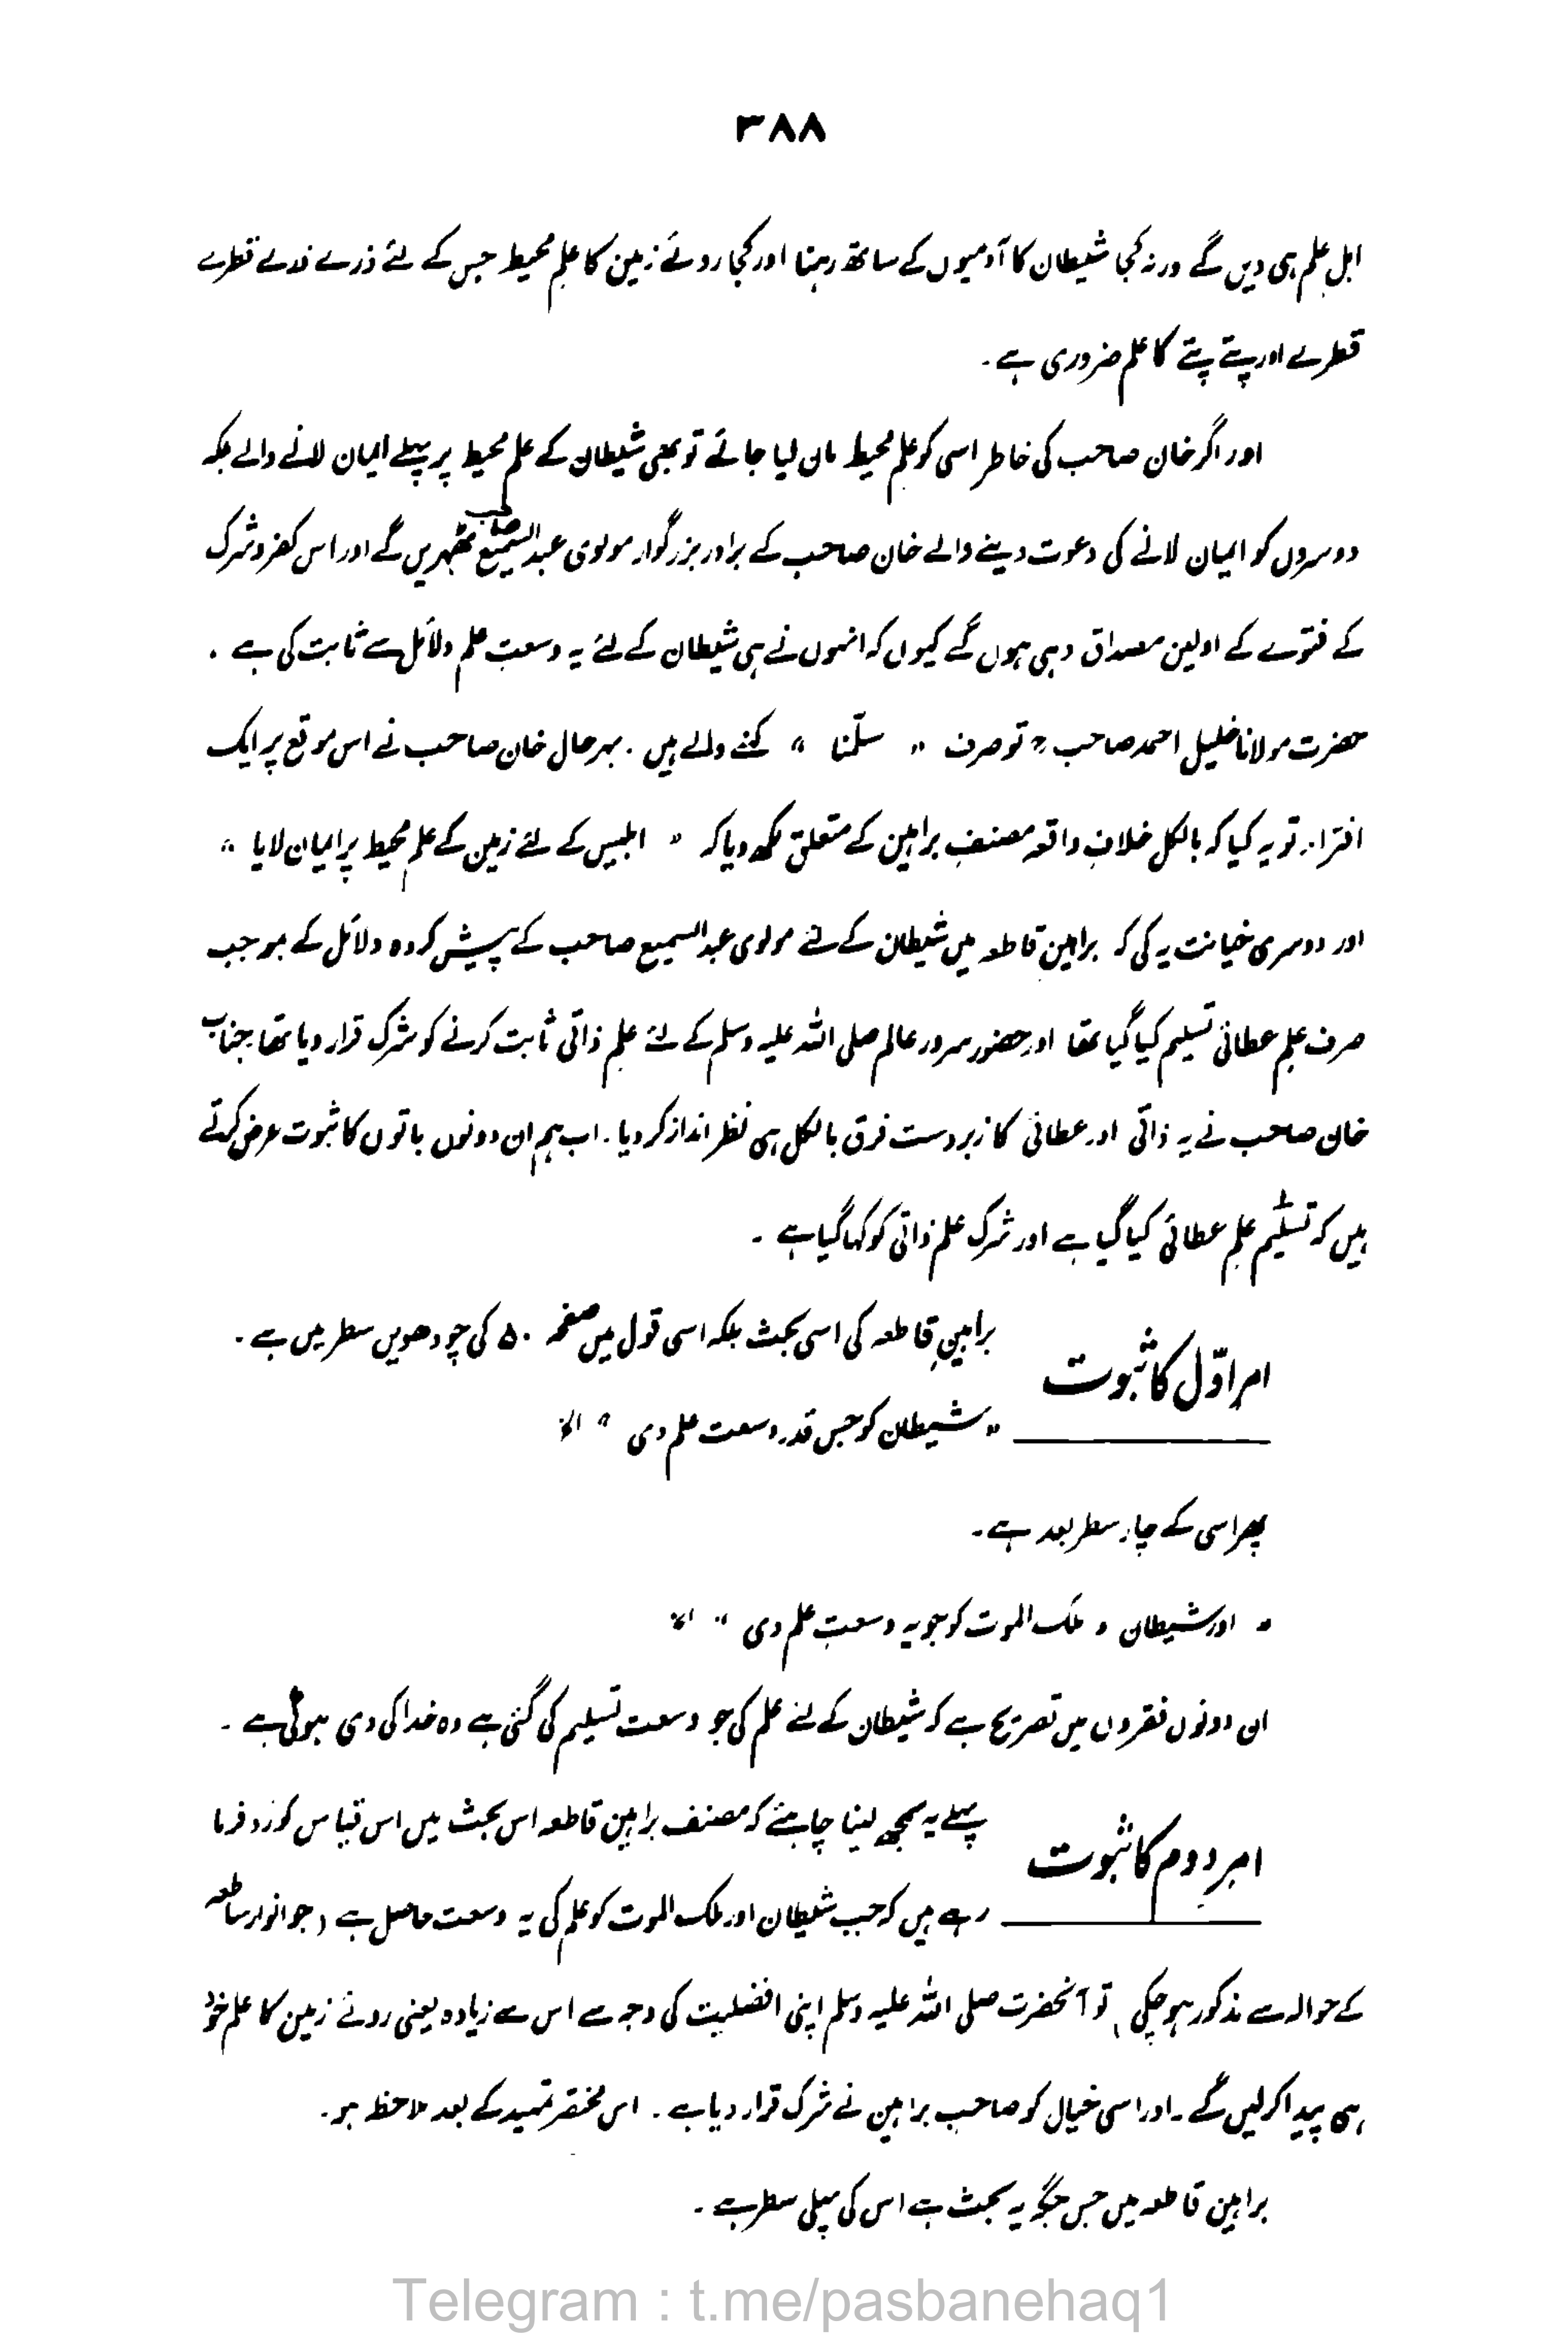 ۳۸۸
اہل علم ہی دیں گے ورنہ کجا شیطان کا آدمیوں کے ساتھ رہنا اور کجا روئے زمین کا علمِ محیط جس کے لئے ذرے ذرے قطرے
قطرے اور پتے پتے کا علم ضروری ہے۔
اور اگر خان صاحب کی خاطر اسی کو علمِ محیط مان لیا جائے تو بھی شیطان کے علم محیط پر پہلے ایمان لانے والے بلکہ
دوسروں کو ایمان لانے کی دعوت دینے والے خان صاحب کے برادر بزرگوار مولوی عبدالسمیع صاحب ٹھہریں گے اور اس کفر و شرک
کے فتوے کے اولین مصداق وہی ہوں گے کیوں کہ انہوں نے ہی شیطان کے لئے یہ وسعتِ علم دلائل سے ثابت کی ہے۔
حضرت مولانا خلیل احمد صاحبؒ تو صرف " سلّمنا " کہنے والے ہیں۔ بہرحال خان صاحب نے اس موقع پر ایک
افتراء تو یہ کیا کہ بالکل خلافِ واقعہ مصنفِ براہین کے متعلق لکھ دیا کہ " ابلیس کے لئے زمین کے علم محیط پر ایمان لایا "
اور دوسری خیانت یہ کی کہ براہینِ قاطعہ میں شیطان کے لئے مولوی عبدالسمیع صاحب کے پیش کردہ دلائل کے بموجب
صرف علمِ عطائی تسلیم کیا گیا تھا اور حضور سرور عالم صلی اللہ علیہ وسلم کے لئے علمِ ذاتی ثابت کرنے کو شرک قرار دیا تھا جناب
خان صاحب نے یہ ذاتی اور عطائی کا زبردست فرق بالکل ہی نظر انداز کر دیا۔ اب ہم ان دونوں باتوں کا ثبوت عرض کرتے
ہیں کہ تسلیم علمِ عطائی کیا گیا ہے اور شرک علم ذاتی کو کہا گیا ہے۔
امرِ اوّل کا ثبوت
براہینِ قاطعہ کی اسی بحث بلکہ اسی قول میں صفحہ ۵۰ کی چودھویں سطر میں ہے۔
" شیطان کو جس قدر وسعت علم دی " الخ
پھر اسی کے چار سطر بعد ہے۔
" اور شیطان و ملک الموت کو جو یہ وسعتِ علم دی " الخ
ان دونوں فقروں میں تصریح ہے کہ شیطان کے لئے علم کی جو وسعت تسلیم کی گئی ہے وہ خدا کی دی ہوئی ہے۔
امرِ دوم کا ثبوت
پہلے یہ سمجھ لینا چاہئے کہ مصنف براہین قاطعہ اس بحث میں اس قیاس کو رد فرما
رہے ہیں کہ جب شیطان اور ملک الموت کو علم کی یہ وسعت حاصل ہے (جو انوار ساطعہ
کے حوالہ سے مذکور ہو چکی) تو آنحضرت صلی اللہ علیہ وسلم اپنی افضلیت کی وجہ سے اس سے زیادہ یعنی روئے زمین کا علم خود
ہی پیدا کرلیں گے۔ اور اسی خیال کو صاحبِ براہین نے شرک قرار دیا ہے۔ اس مختصر تمہید کے بعد ملاحظہ ہو۔
براہین قاطعہ میں جس جگہ یہ بحث ہے اس کی پہلی سطر ہے۔
Telegram : t.me/pasbanehaq1